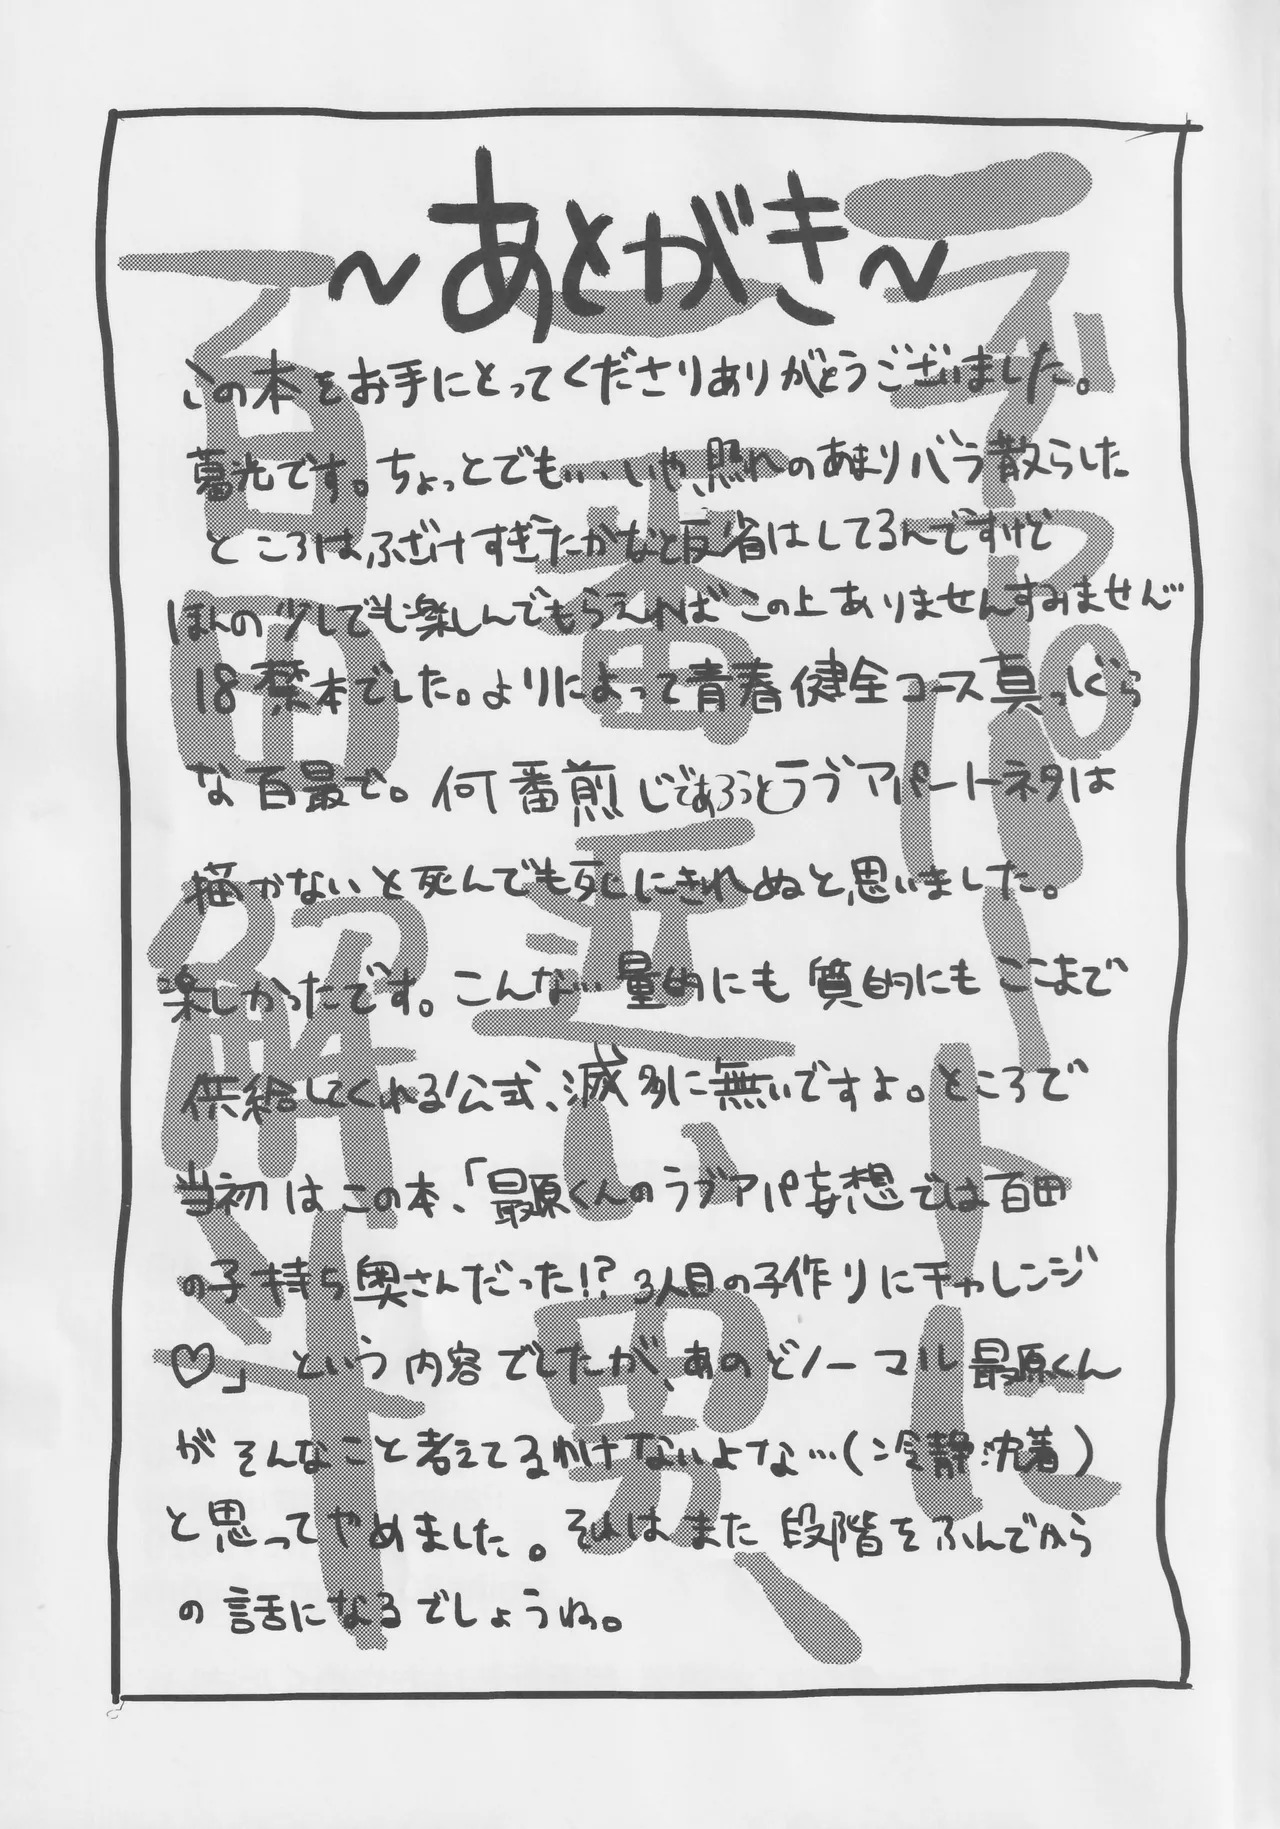 ～あとがき～
この本をお手にとってくださりありがとうございました。
暮光です。ちょっとでも…いや、照れのあまりバラ散らした
ところはふざけすぎたかなと反省はしてるんですけど
ほんの少しでも楽しんでもらえればこの上ありませんすみません
18禁本でした。よりによって青春健全コース真っしぐら
な百最で。何番煎じであろうとラブアパートネタは
描かないと死んでも死にきれぬと思いました。
楽しかったです。こんな…量的にも質的にもここまで
供給してくれる公式、滅多に無いですよ。ところで
当初はこの本、「最原くんのラブアパ妄想では百田
の子持ち奥さんだった!? 3人目の子作りにチャレンジ
♡」という内容でしたが、あのどノーマル最原くん
がそんなこと考えてるわけないよな…(冷静沈着)
と思ってやめました。それはまた段階をふんでから
の話になるでしょうね。